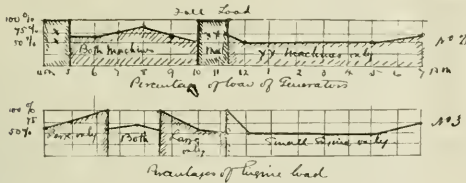 Full Load
100%
75%
50%
Both Machines
XX Machines only
No 2
5 6 7 8 9 10 11 12 1 2 3 4 5 6 7
Percentage of Load of Generators
100%
75
50%
only
Both
Large only
Small Engine only
No 3
Percentages of Engine load